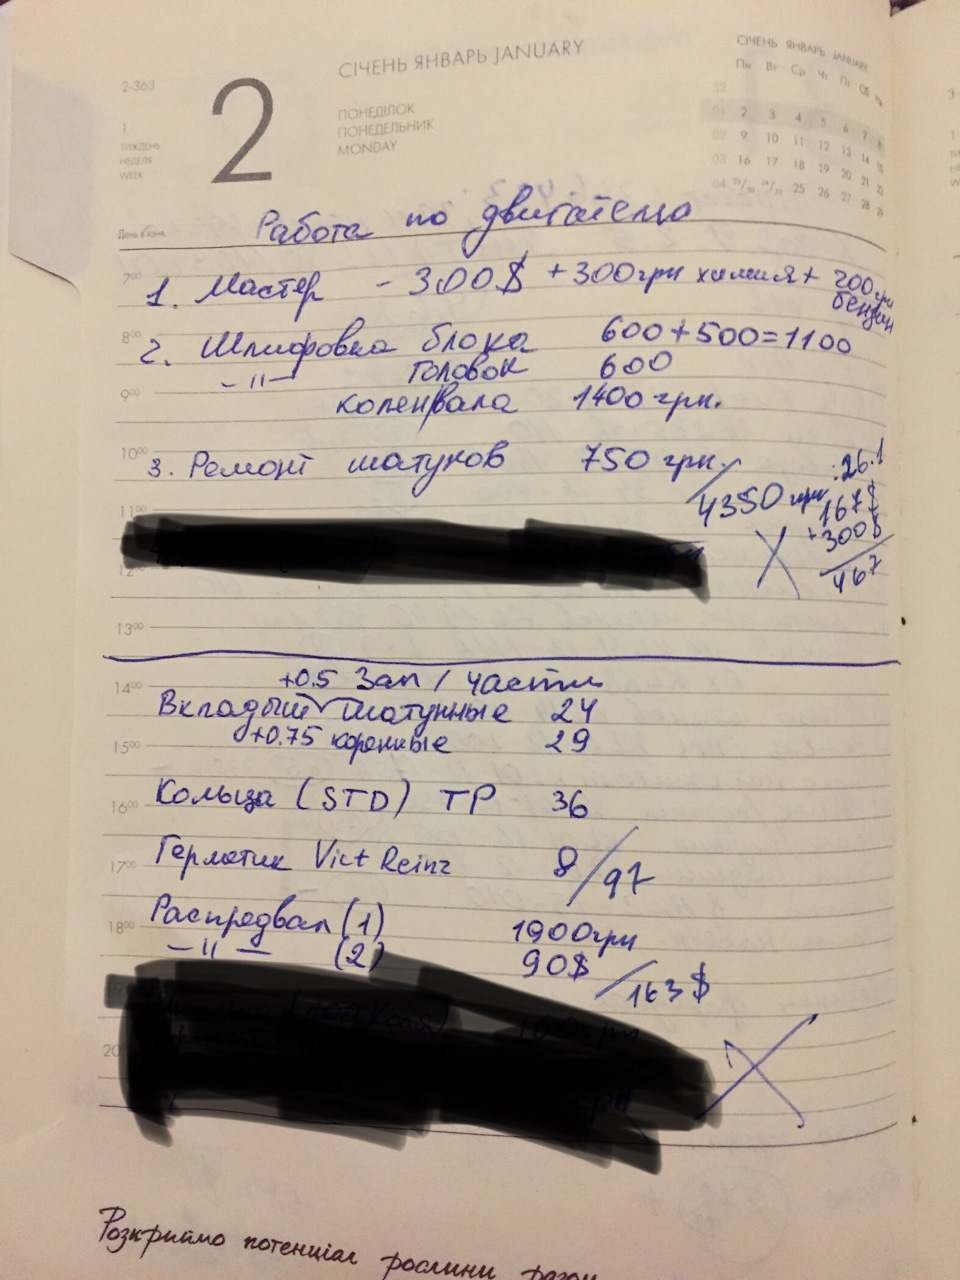 2-363
2
СІЧЕНЬ ЯНВАРЬ JANUARY
ПОНЕДІЛОК
ПОНЕДЕЛЬНИК
MONDAY
1
ТИЖДЕНЬ
НЕДЕЛЯ
WEEK
СІЧЕНЬ ЯНВАРЬ JANUARY
Пн Вт Ср Чт Пт Сб Нд
52
01 2 3 4 5 6 7 8
02 9 10 11 12 13 14 15
03 16 17 18 19 20 21 22
04 23/30 24/31 25 26 27 28 29
Работа по двигателю
7⁰⁰
1. Мастер - 300$ + 300грн химия + 200грн
бензин
8⁰⁰
2. Шлифовка блока 600+500=1100
-"- головок 600
9⁰⁰
коленвала 1400 грн.
10⁰⁰
3. Ремонт шатунов 750 грн.
/4350 грн
:26.1
167$
+300$
/467
11⁰⁰
12⁰⁰
13⁰⁰
+0.5 Зап/части
14⁰⁰
Вкладыш шатунные 24
+0.75 коренные 29
15⁰⁰
Кольца (STD) TP 36
16⁰⁰
Герметик Vict Reinz 8
/97
17⁰⁰
Распредвал (1) 1900грн
18⁰⁰
-"- (2) 90$
/163$
20
Розкриймо потенціал рослини разом